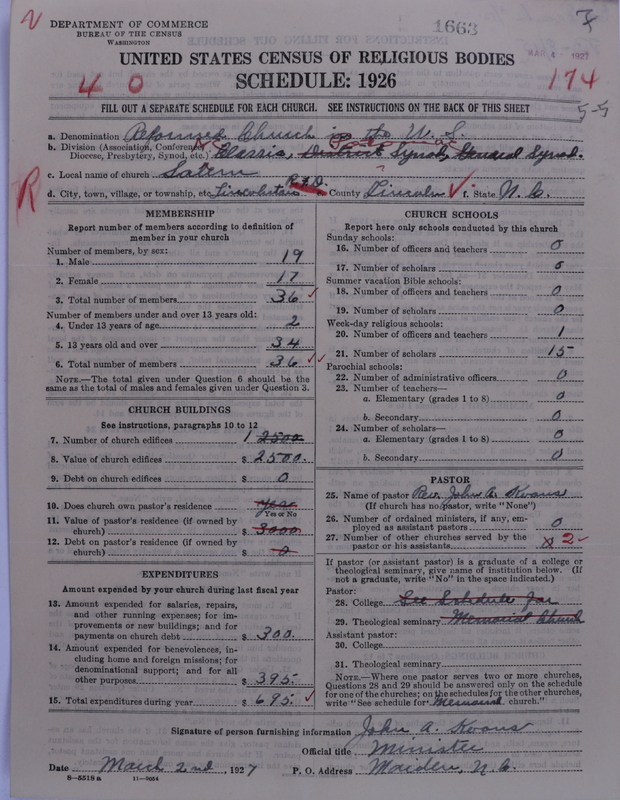 DEPARTMENT OF COMMERCE
BUREAU OF THE CENSUS
WASHINGTON
1663
UNITED STATES CENSUS OF RELIGIOUS BODIES
SCHEDULE: 1926
4 0
174
5-5
FILL OUT A SEPARATE SCHEDULE FOR EACH CHURCH. SEE INSTRUCTIONS ON THE BACK OF THIS SHEET
a. Denomination Reformed Church in the U. S.
b. Division (Association, Conference,
Diocese, Presbytery, Synod, etc.) Classis, District Synod, General Synod.
c. Local name of church Salem
R
d. City, town, village, or township, etc. Lincolnton R.F.D. e. County Lincoln f. State N. C.
MEMBERSHIP
Report number of members according to definition of
member in your church
Number of members, by sex:
1. Male 19
2. Female 17
3. Total number of members 36
Number of members under and over 13 years old:
4. Under 13 years of age 2
5. 13 years old and over 34
6. Total number of members 36
NOTE.—The total given under Question 6 should be the
same as the total of males and females given under Question 3.
CHURCH BUILDINGS
See instructions, paragraphs 10 to 12
7. Number of church edifices 1 2500
8. Value of church edifices $ 2500.
9. Debt on church edifices $ 0
10. Does church own pastor's residence Yes
Yes or No
11. Value of pastor's residence (if owned by
church) $ 3000
12. Debt on pastor's residence (if owned by
church) $ 0
EXPENDITURES
Amount expended by your church during last fiscal year
13. Amount expended for salaries, repairs,
and other running expenses; for im-
provements or new buildings; and for
payments on church debt $ 300.
14. Amount expended for benevolences, in-
cluding home and foreign missions; for
denominational support; and for all
other purposes $ 395.
15. Total expenditures during year $ 695.
CHURCH SCHOOLS
Report here only schools conducted by this church
Sunday schools:
16. Number of officers and teachers 0
17. Number of scholars 0
Summer vacation Bible schools:
18. Number of officers and teachers 0
19. Number of scholars 0
Week-day religious schools:
20. Number of officers and teachers 1
21. Number of scholars 15
Parochial schools:
22. Number of administrative officers 0
23. Number of teachers—
a. Elementary (grades 1 to 8) 0
b. Secondary 0
24. Number of scholars—
a. Elementary (grades 1 to 8) 0
b. Secondary 0
PASTOR
25. Name of pastor Rev. John A. Koons
(If church has no pastor, write "None")
26. Number of ordained ministers, if any, em-
ployed as assistant pastors 0
27. Number of other churches served by the
pastor or his assistants 2
If pastor (or assistant pastor) is a graduate of a college or
theological seminary, give name of institution below. (If
not a graduate, write "No" in the space indicated.)
Pastor:
28. College See Schedule for
29. Theological seminary Memorial Church
Assistant pastor:
30. College
31. Theological seminary
NOTE.—Where one pastor serves two or more churches,
Questions 28 and 29 should be answered only on the schedule
for one of the churches; on the schedules for the other churches,
write "See schedule for Memorial church."
Signature of person furnishing information John A. Koons
Official title Minister
Date March 2nd, 1927 P. O. Address Maiden, N. C.
8—5518 a 11—9064